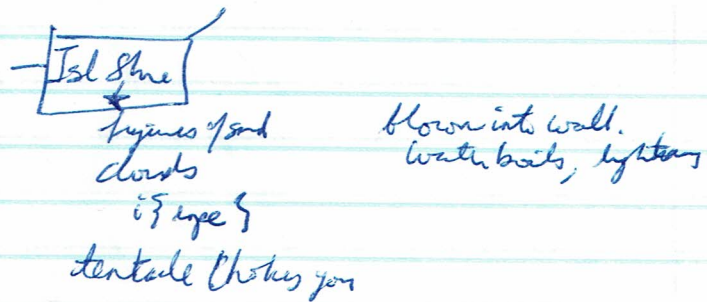 Isl Shre
figures of sand
clouds
i{ rope }
tentacle chokes you
blown into wall.
water boils, lightning